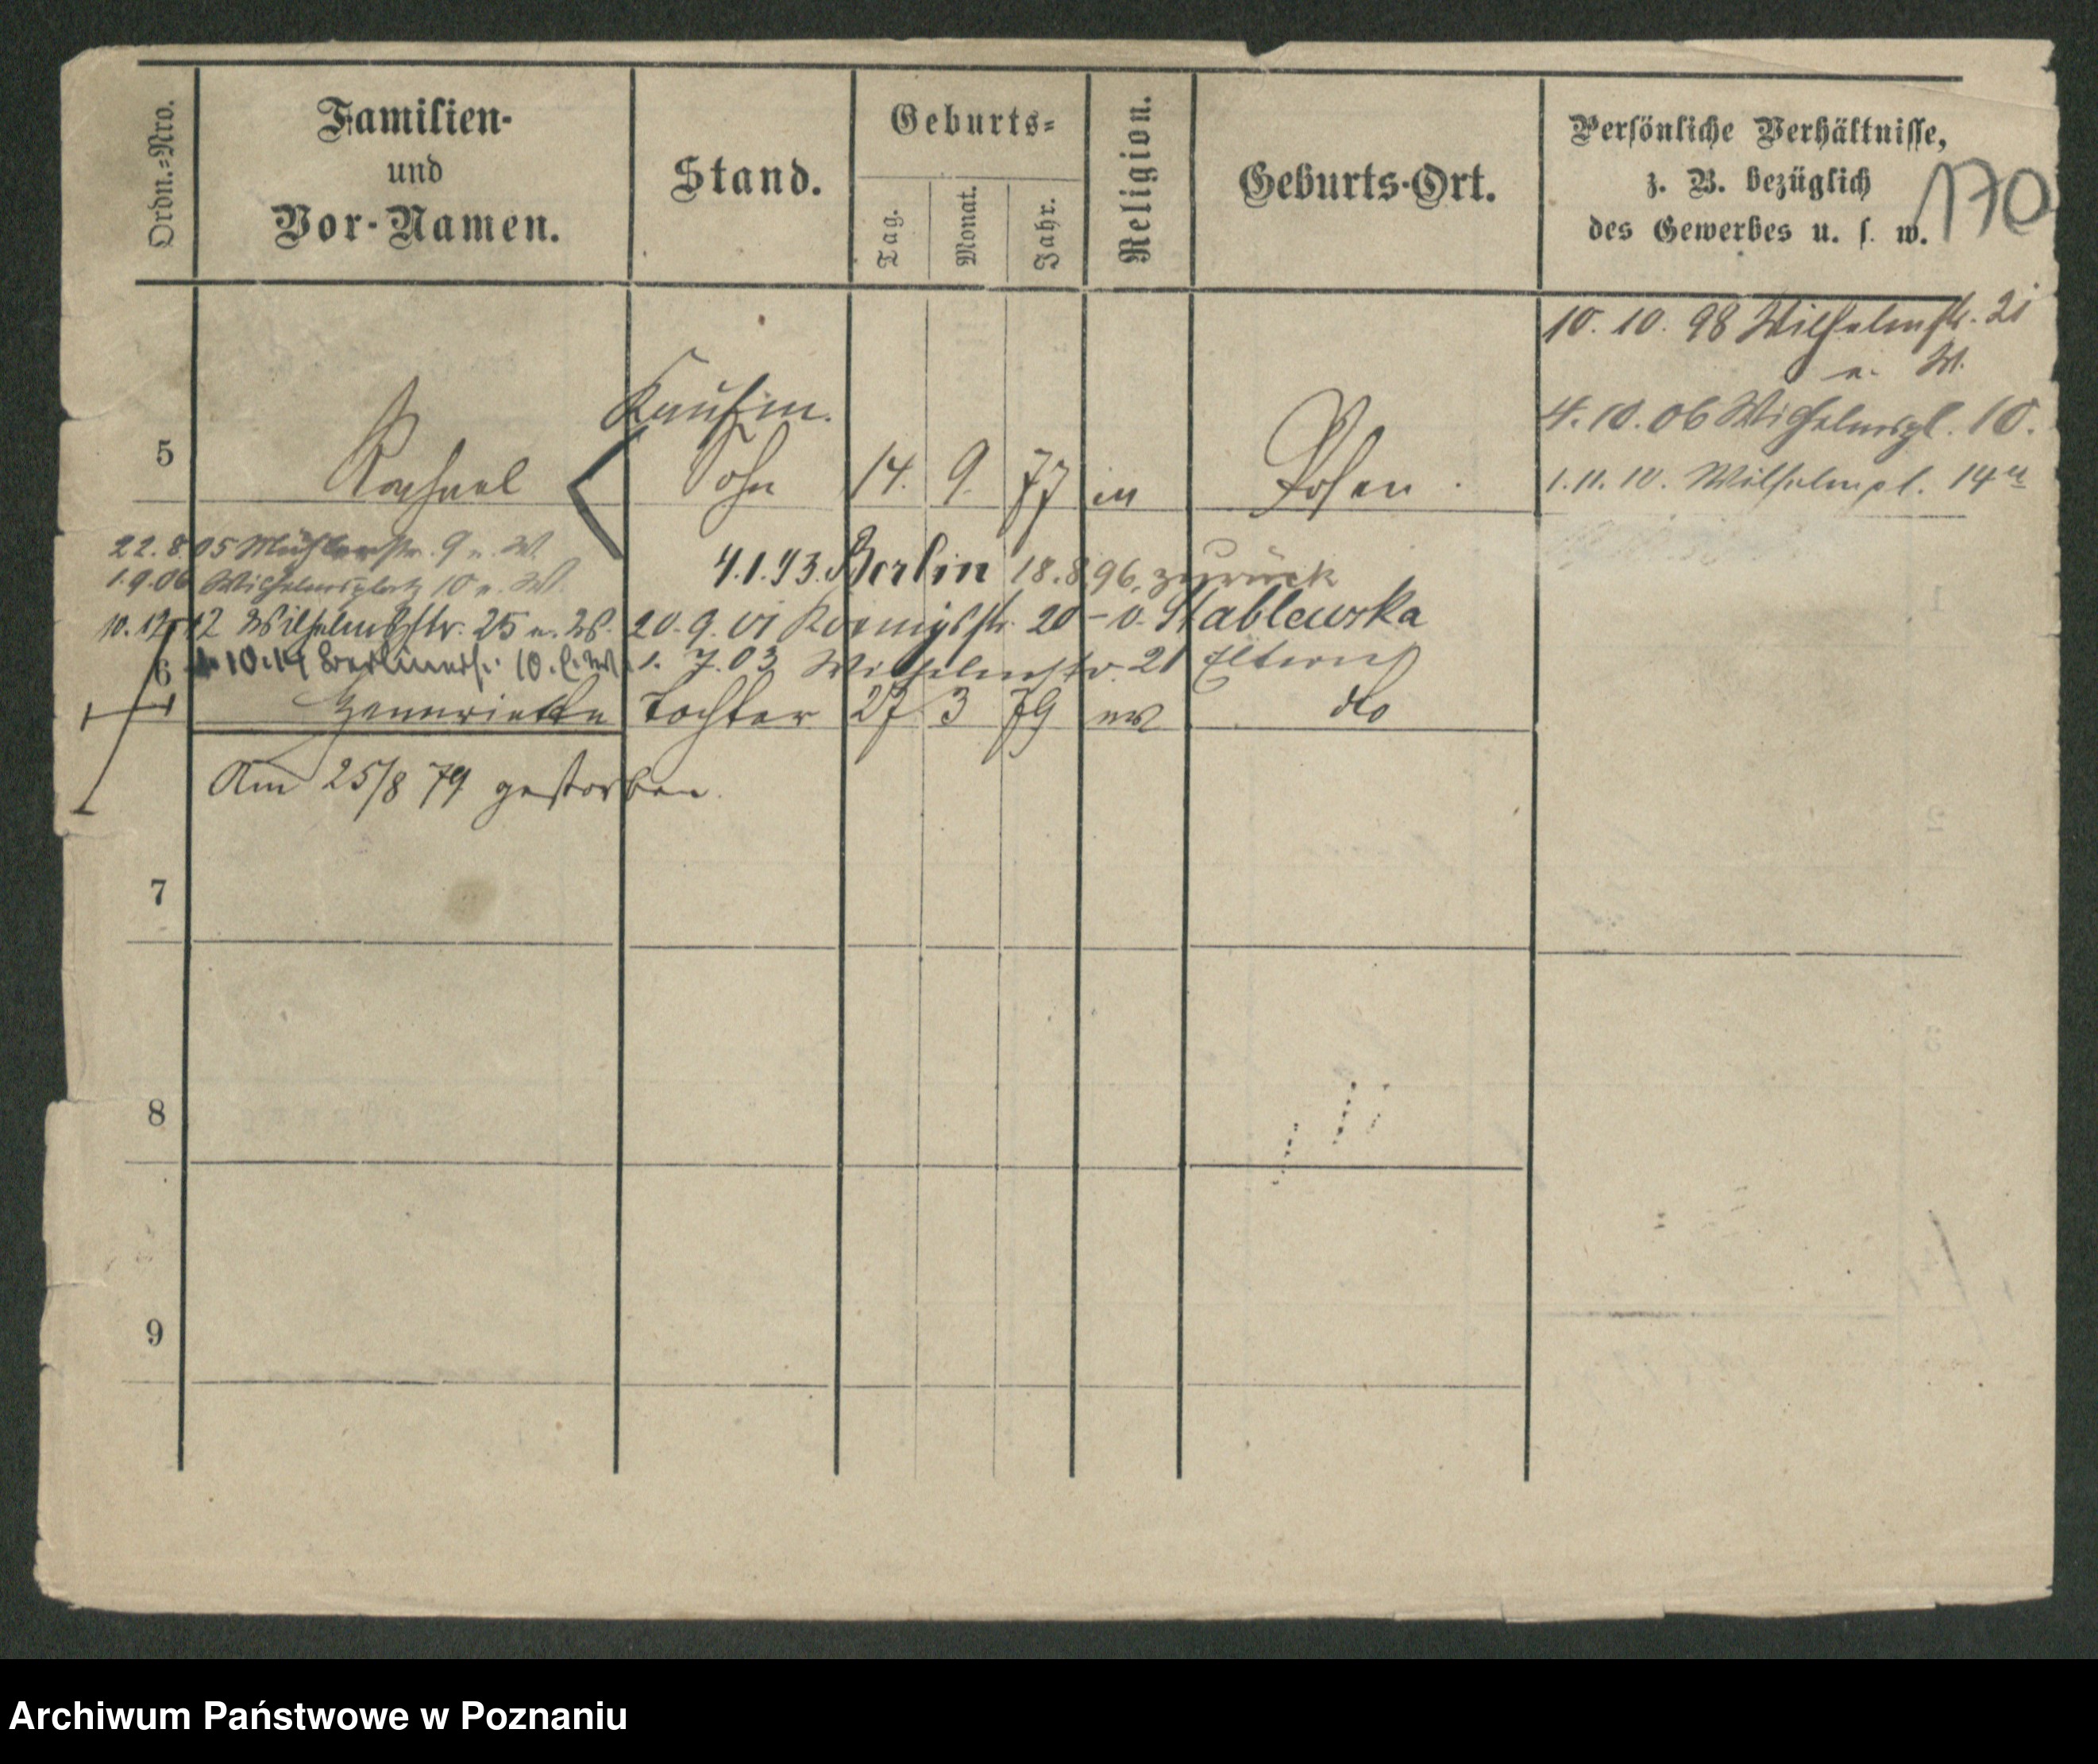 Ordn.=Nro.
Familien-
und
Vor-Namen.
Stand.
Geburts=
Tag.
Monat.
Jahr.
Religion.
Geburts-Ort.
Persönliche Verhältnisse,
z. B. bezüglich
des Gewerbes u. s. w.
170
10. 10. 98 Wilhelmstr. 21
u. W.
Kaufm.
4. 10. 06 Wilhelmspl. 10.
5 Raphael Sohn 14. 9. 77 Posen.
1. 11. 10. Wilhelmpl. 14
22. 8. 05 Mühlenstr. 9 u. W.
4.1.93. Berlin 18.8.96. zurück
1.9.06 Wilhelmsplatz 10 u. W.
10. 12. 12 Wilhelmstr. 25 u. W.
20. 9. 01 Koenigsstr. 20 - v. Stablewska
10.14 Berlinerstr. 10.
1. 7. 03 Wilhelmstr. 21 Eltern
6 Hennriette Tochter 27 3 79 do
Am 25/8 79 gestorben.
7
8
9
Archiwum Państwowe w Poznaniu